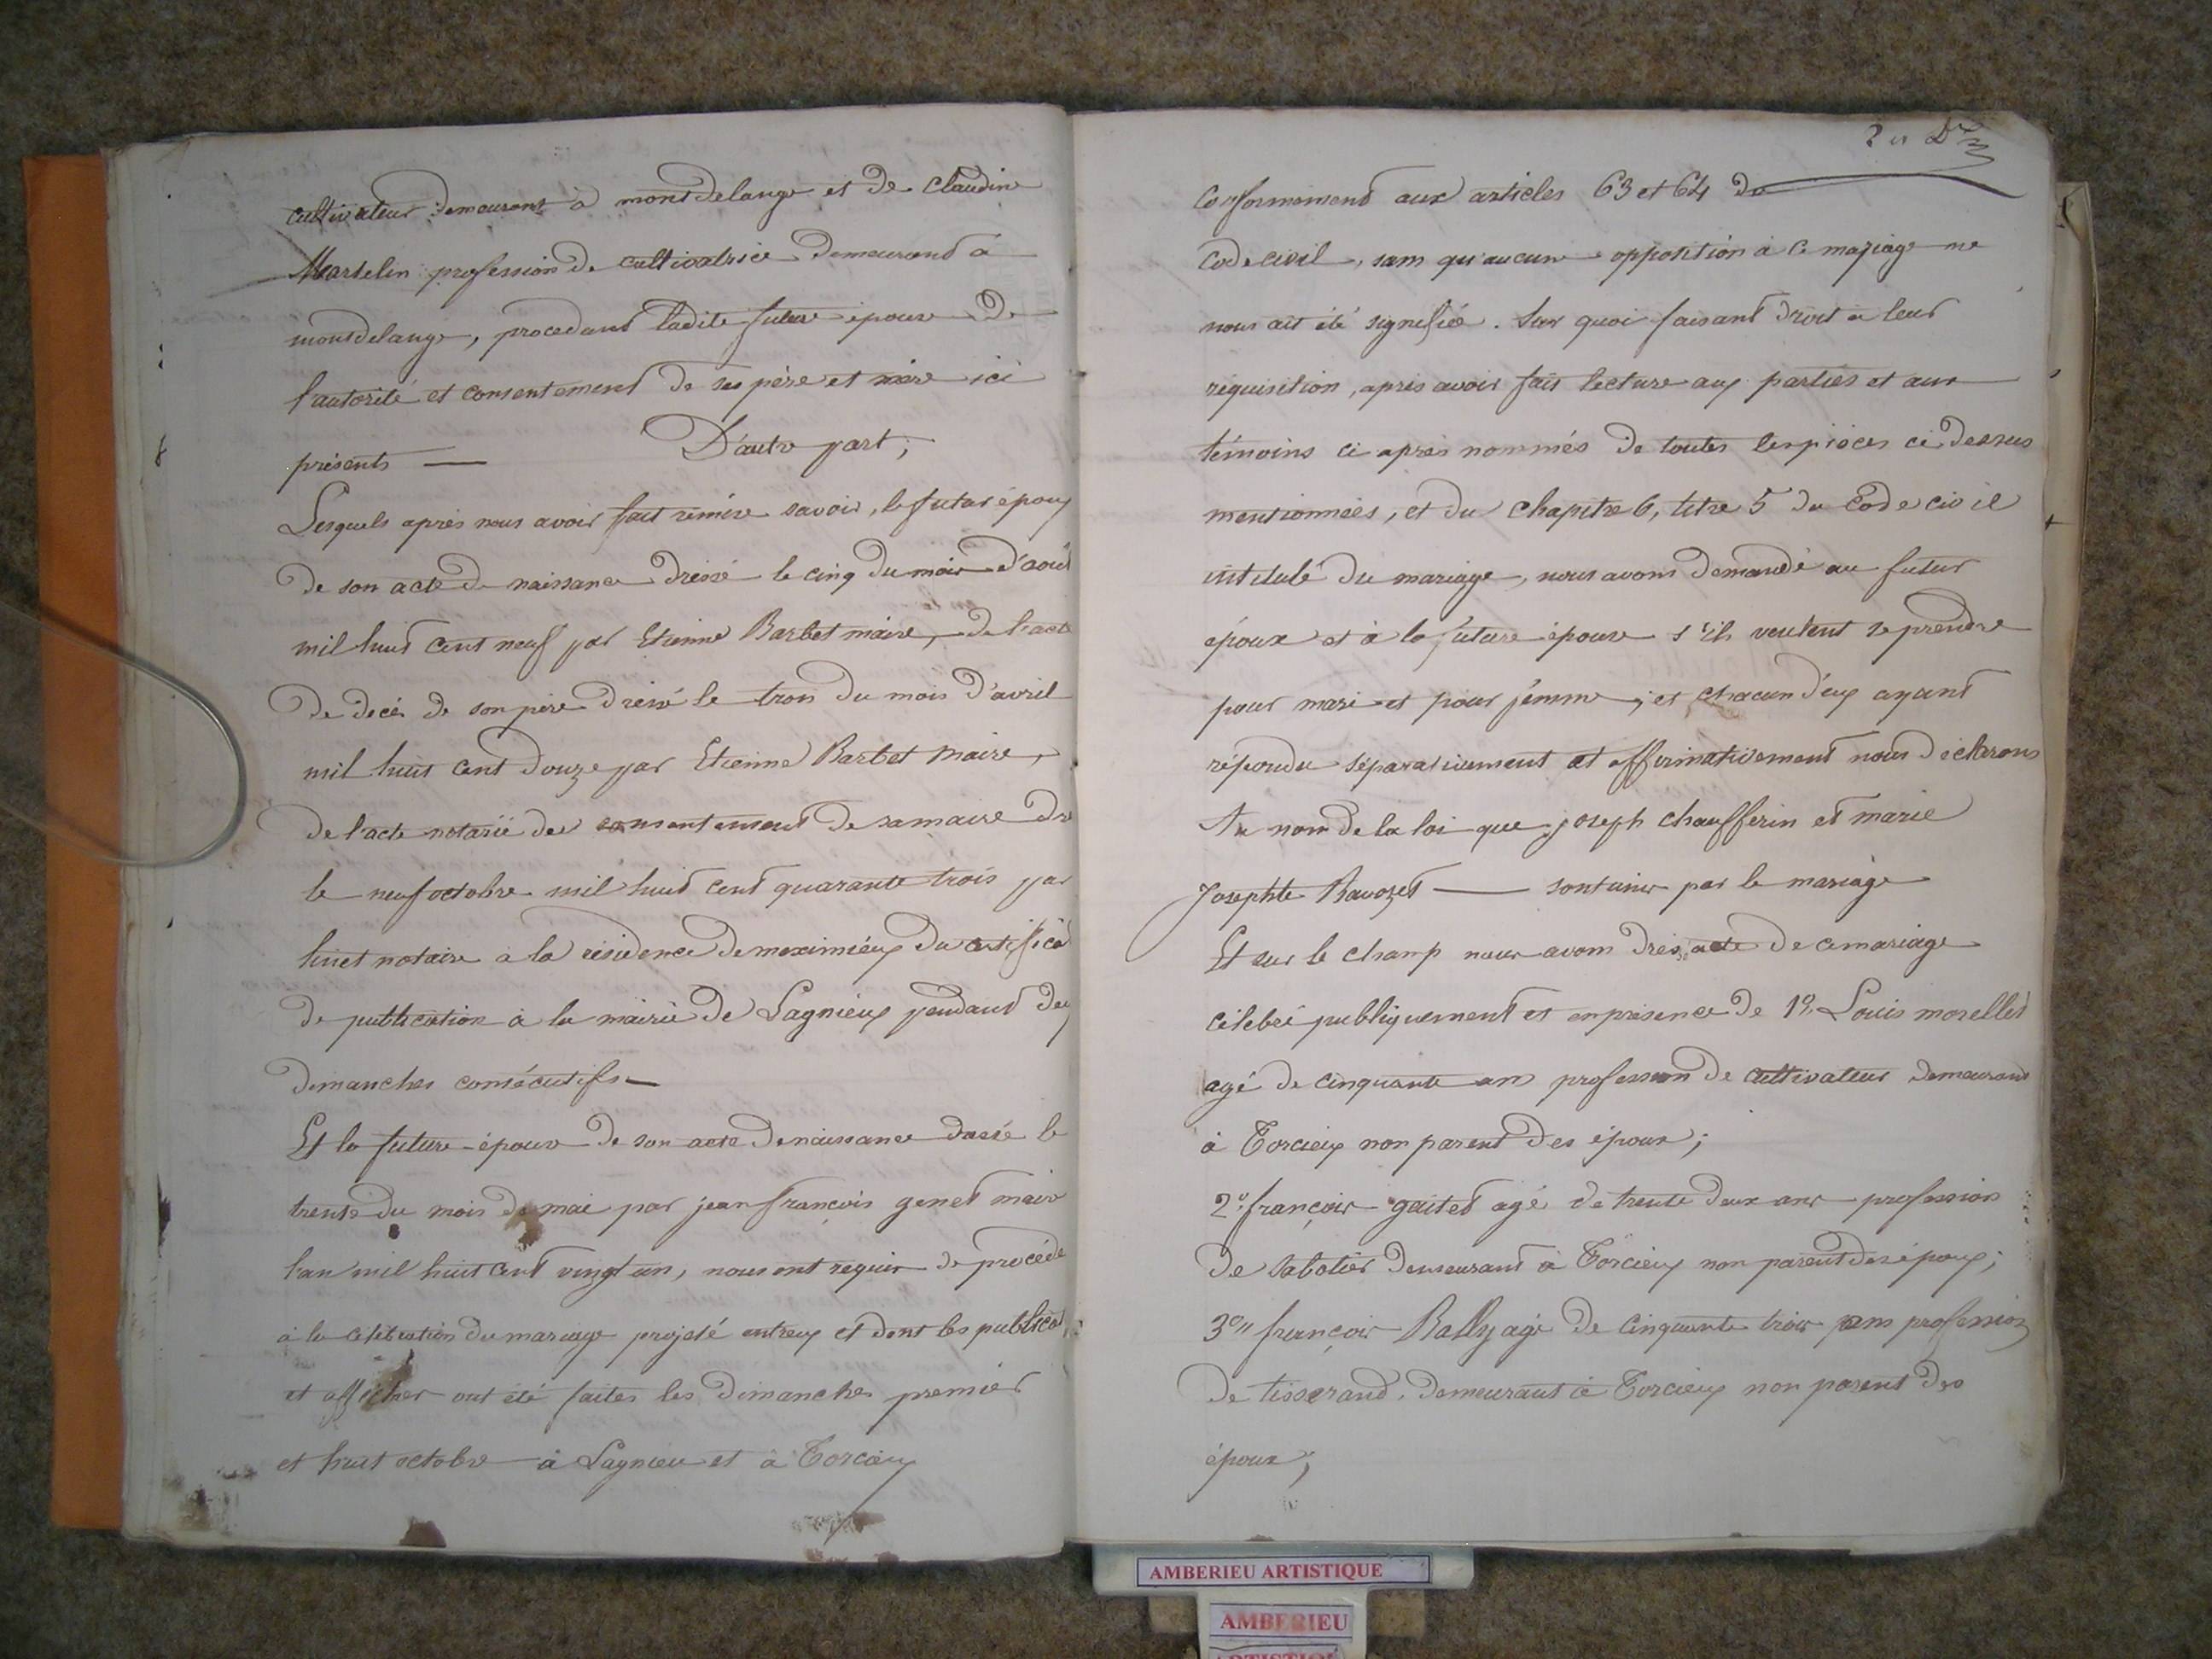 cultivateur demeurant à montdelange et de claudine
Martelin profession de cultivatrice demeurand à
montdelange, procedant ladite future épouse de
l'autorité et consentement de ses père et mère ici
présents — D'autre part;
Lesquels après nous avoir fait remise savoir, le futur époux
de son acte de naissance dressé le cinq du mois d'août
mil huit cent neuf par Etienne Barbet maire, de l'acte
de decés de son père dréssé le trois du mois d'avril
mil huit cent douze par Etienne Barbet maire,
de l'acte notarié de consentement de sa maire
le neuf octobre mil huit cent quarante trois par
huet notaire à la résidence de meximieux du certificat
de publication à la mairie de Lagnieux pendant deux
dimanches consécutifs —
Et la future épouse de son acte de naissance dressé le
trente du mois de mai par jean françois genet maire
l'an mil huit cent vingt un, nous ont requis de procéder
à la célébration du mariage projeté entreux et dont les publicat
et affiches ont été faites les dimanches premier
et huit octobre à Lagnieu et à Torcieux
conformement aux articles 63 et 64 du
code civil, sans qu'aucune opposition à ce mariage ne
nous ait été signifiée. Sur quoi faisant droit à leur
réquisition, après avoir fait lecture aux parties et aux
témoins ci après nommés de toutes les pièces ci dessus
mentionnées, et du chapitre 6, titre 5 du code civil
intitulé du mariage, nous avons demandé au futur
époux et à la future épouse s'ils veulent se prendre
pour mari et pour femme; et chacun d'eux ayant
répondu séparativement et affirmativement nous déclarons
Au nom de la loi que joseph chaufferin et marie
Josephte Ravozet — sont unis par le mariage
Et sur le champ nous avons dressé acte de ce mariage
célébré publiquement et en présence de 1º Louis morellet
agé de cinquante ans profession de cultivateur demeurant
à Torcieux non parent des époux;
2º françois gaitet agé de trente deux ans profession
de sabotier demeurant à Torcieux non parent des époux;
3º françois Bally agé de cinquante trois ans profession
de tisserand, demeurant à Torcieux non parent des
époux;
AMBERIEU ARTISTIQUE
AMBERIEU
ARTISTIQUE